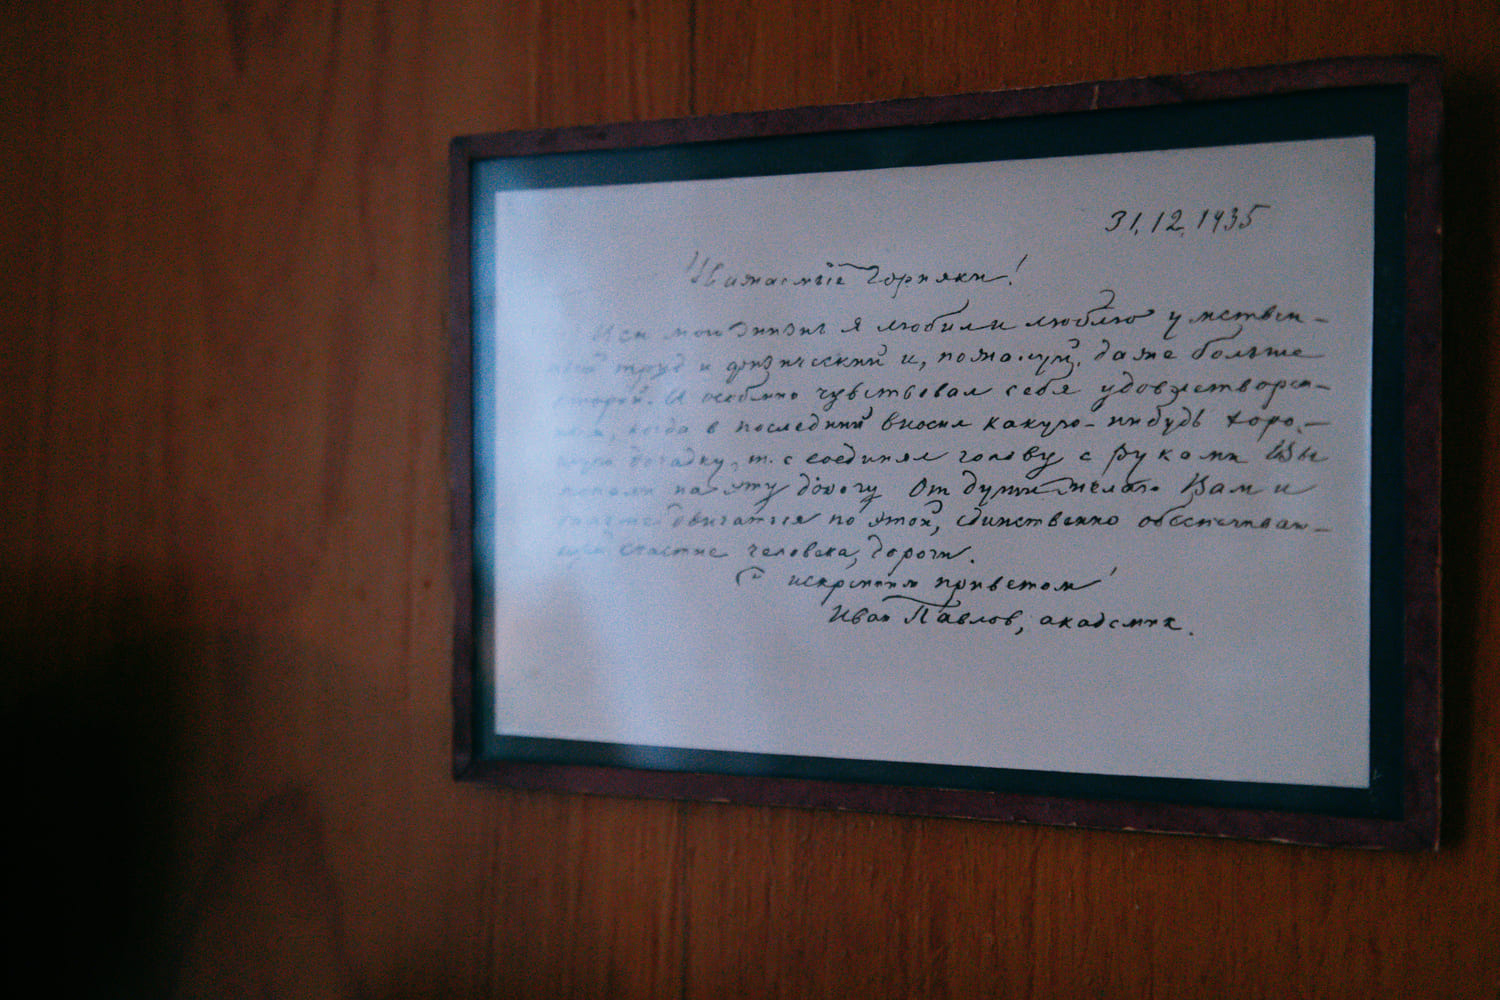 31.12.1935
Уважаемые горняки!
Всю мою жизнь я любил и люблю умствен-
ный труд и физический и, пожалуй, даже больше
второй. И особенно чувствовал себя удовлетворен-
ным, когда в последний вносил какую-нибудь хоро-
шую догадку, т. е соединял голову с руками Вы
попали на эту дорогу От души желаю Вам и
дальше двигаться по этой, единственно обеспечиваю-
щей счастие человека, дороги.
С искренним приветом
Иван Павлов, академик.